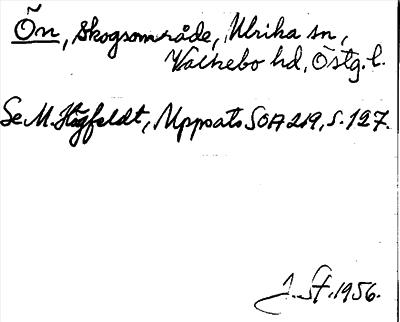 Õn, Skogsområde, Ulrika sn,
Valkebo hd, Östg. l.
Se M. Högfeldt, Uppsats SOA 219, s. 127.
J. St. 1956.